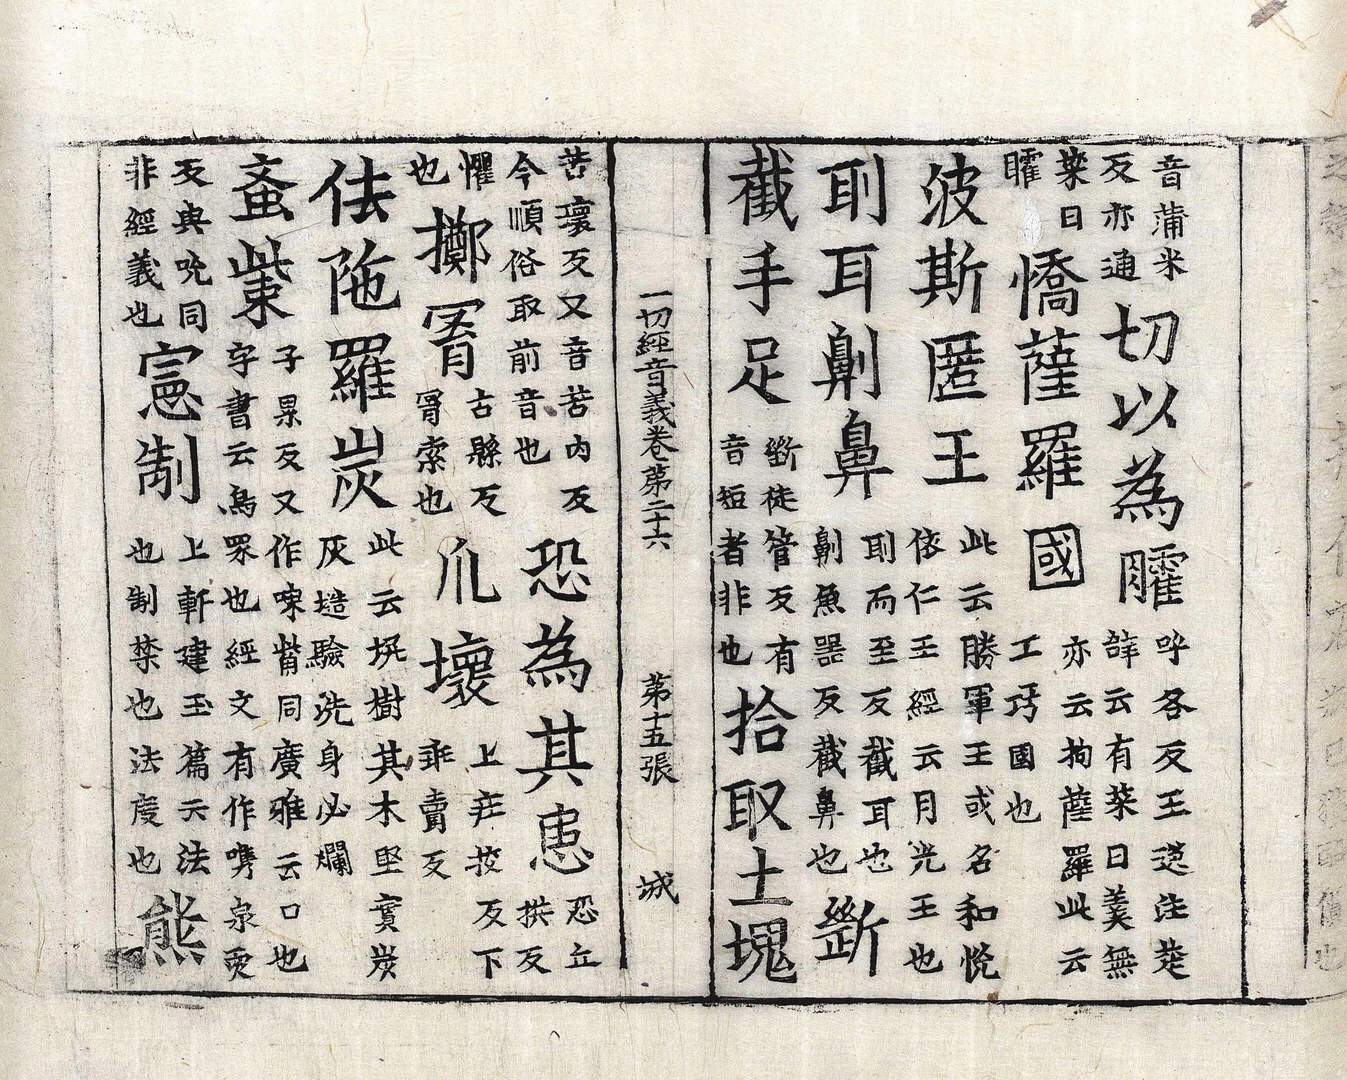 音蒲米
反亦通切以為臛呼各反王逸注楚
辞云有菜曰羮無
菜曰
臛憍薩羅國亦云拘薩羅此云
工巧國也
波斯匿王此云勝軍王或名和悅
依仁王經云月光王也
刵耳劓鼻刵而至反截耳也
劓魚器反截鼻也斷
截手足斷徒管反有
音短者非也拾取土塊
一切經音義卷第二十六 第十五張 城
苦壞反又音苦內反
今順俗取前音也恐為其患恐丘
拱反
懼
也擲罥古縣反
罥索也爪壞上莊挍反下
乖賣反
佉陁羅炭此云坑樹其木堅實炭
灰塔驗洗身必爛
蚉㭰子累反又作㖩觜同廣雅云口也
字書云鳥喙也經文有作嘴泉
反典吮同
非經義也憲制上軒建玉篇云法
也制禁也法度也熊